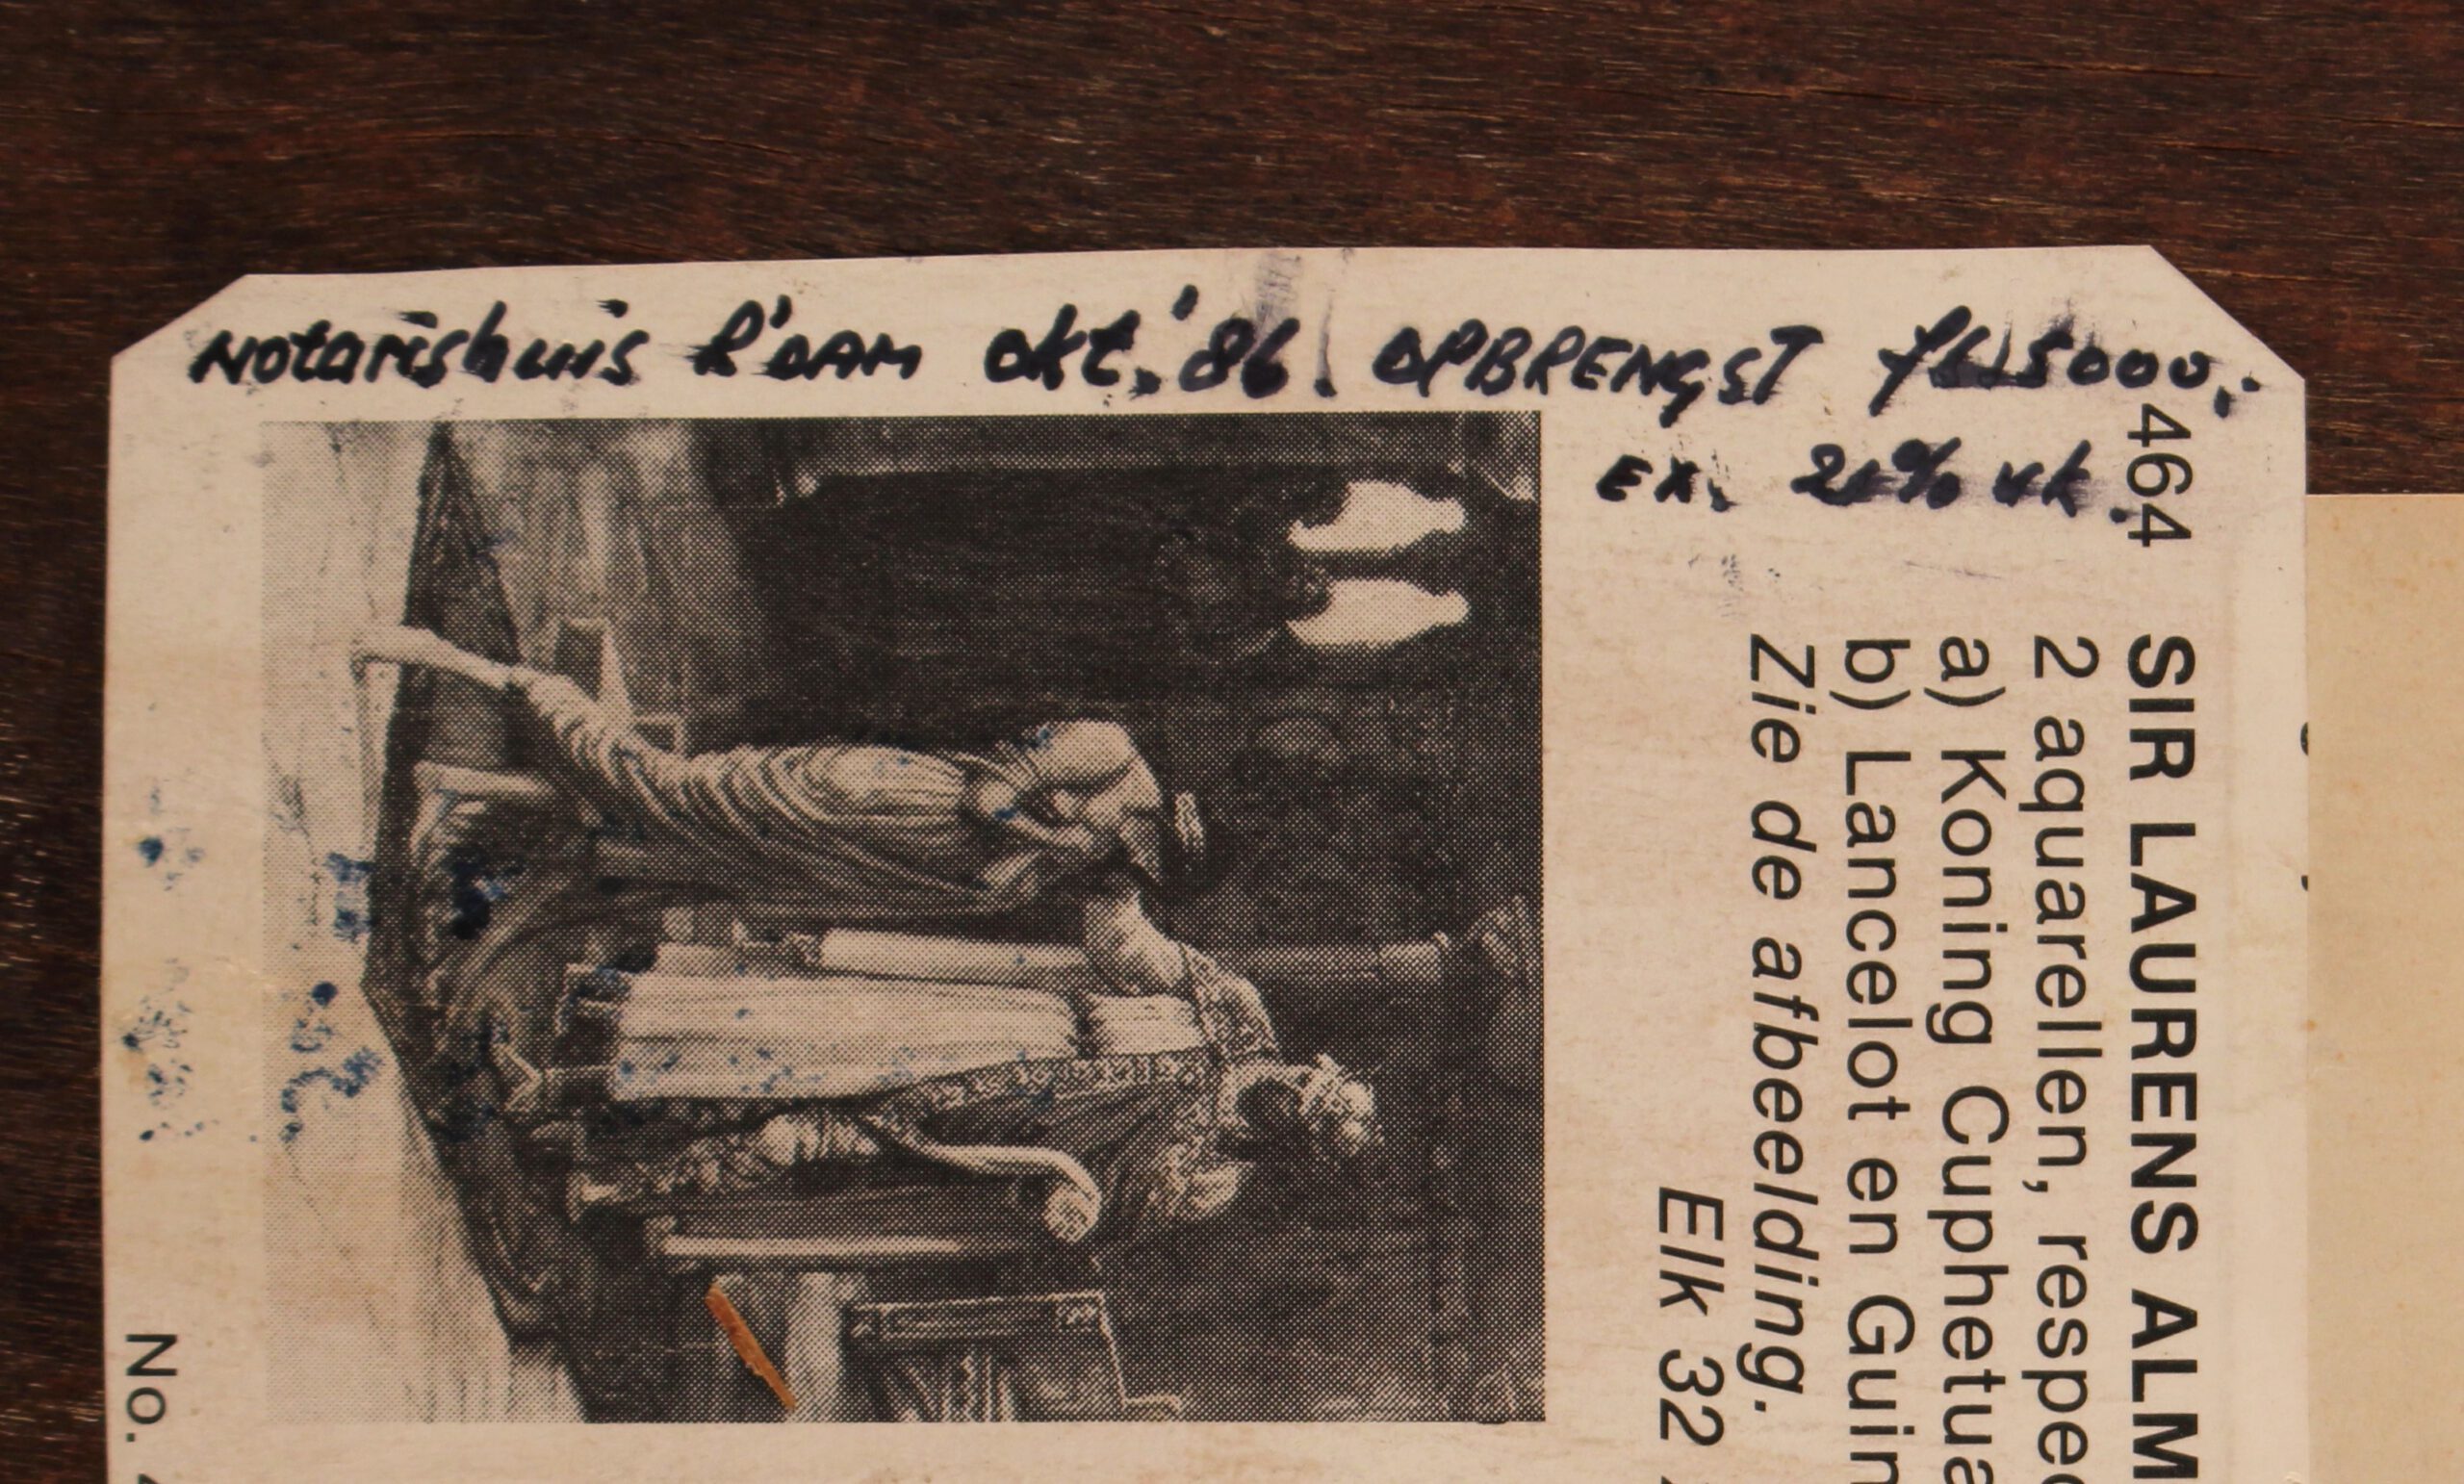 Notarishuis R'DAM okt.'86. OPBRENGST
EX. 20% vk.
464 SIR LAURENS ALM
2 aquarellen, respec
a) Koning Cuphetua
b) Lancelot en Guin
Zie de afbeelding.
Elk 32
No.